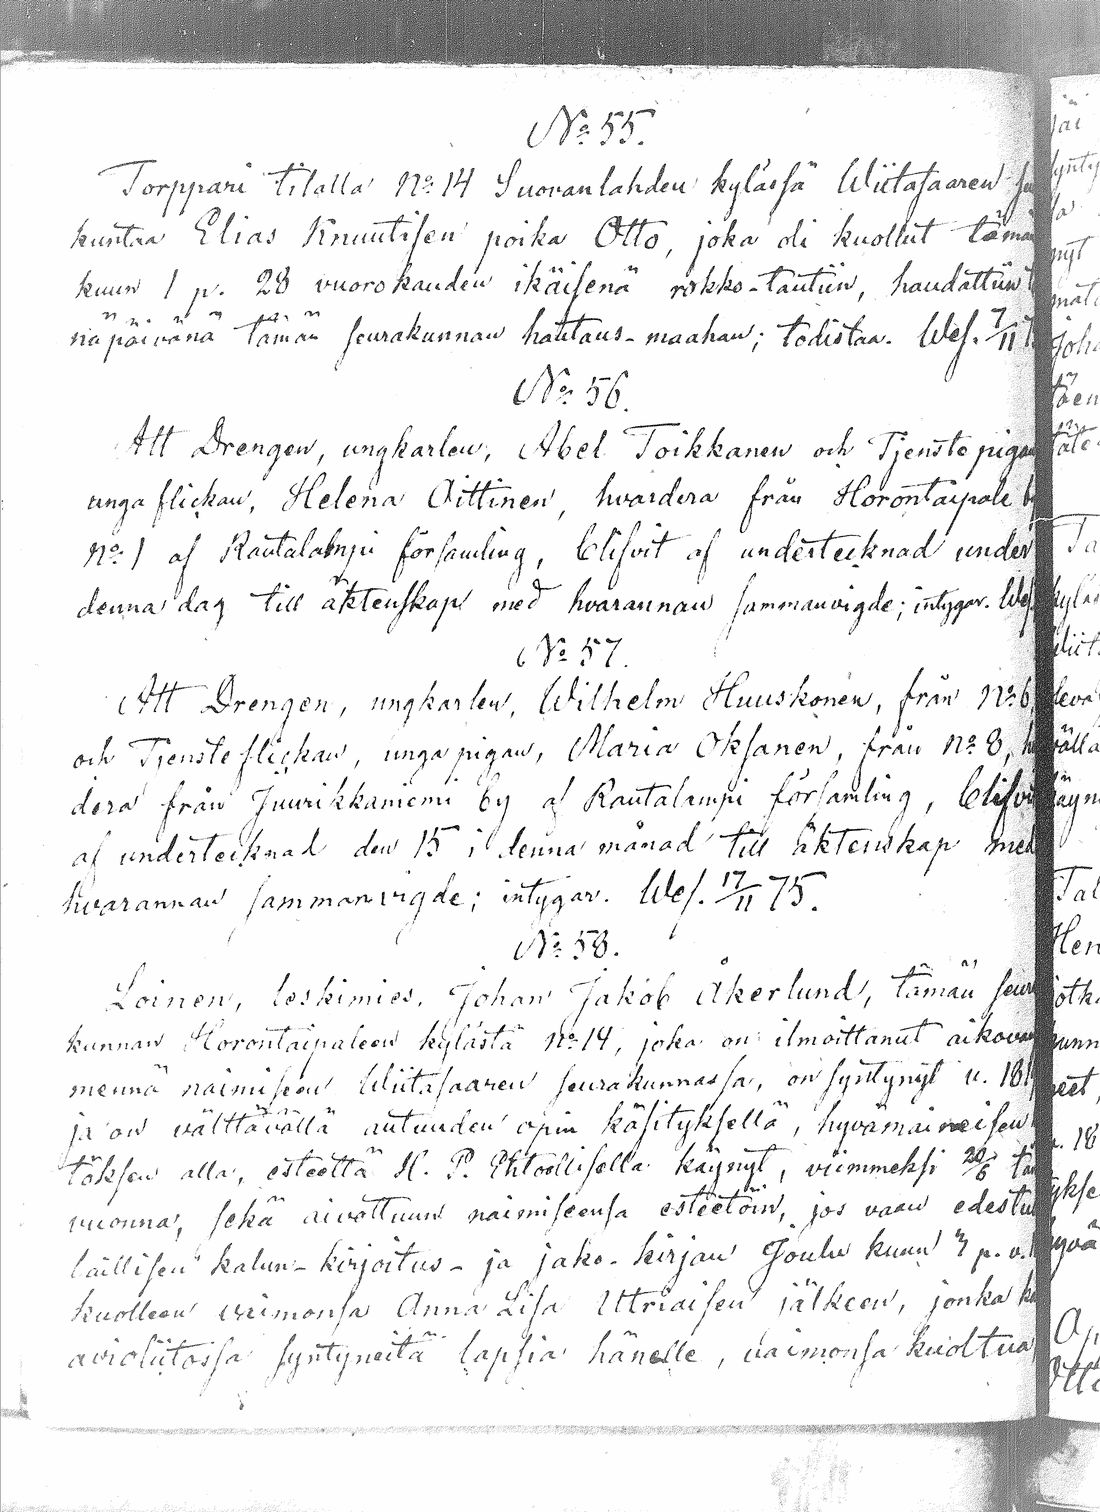 № 55.
Torppari tilalla № 14 Suovanlahden kylässä Wiitasaaren
kuntaa Elias Knuutisen poika Otto, joka oli kuollut tämän
kuun 1 p. 28 vuorokauden ikäisenä rokko-tautiin, haudattiin
näpäivänä tämän seurakunnan hautaus-maahan; todistaa. Wes. 7/11
№ 56.
Att Drengen, ungkarlen, Abel Toikkanen och Tjenstepigan
unga flickan, Helena Oittinen, hvardera från Horontaipale
№ 1 af Rautalampi församling, blifvit af undertecknad under
denna dag till äktenskap med hvarannan sammanvigde; intygar. Wes.
№ 57.
Att Drengen, ungkarlen, Wilhelm Huuskonen, från № 6,
och Tjensteflickan, unga pigan, Maria Oksanen, från № 8,
dera från Juurikkaniemi by af Rautalampi församling, blifvit
af undertecknad den 15 i denna månad till äktenskap med
hvarannan sammanvigde; intygar. Wes. 17/11 75.
№ 58.
Loinen, leskimies, Johan Jakob Åkerlund, tämän seura
kunnan Horontaipaleen kylästä № 14, joka on ilmoittanut aikovan
mennä naimiseen Wiitasaaren seurakunnassa, on syntynyt v. 181
ja on välttävällä autuuden opin käsityksellä, hyvämaineisen
töksen alla, esteettä H. P. Ehtoollisella käynyt, viimmeksi 20/6
vuonna, sekä aivottuun naimiseensa esteetöin, jos vaan edestu
laillisen kalun-kirjoitus- ja jako-kirjan Joulu kuun 7 p. v.
kuolleen vaimonsa Anna Lisa Utriaisen jälkeen, jonka
avioliitossa syntyneitä lapsia hänelle, vaimonsa kuoltua